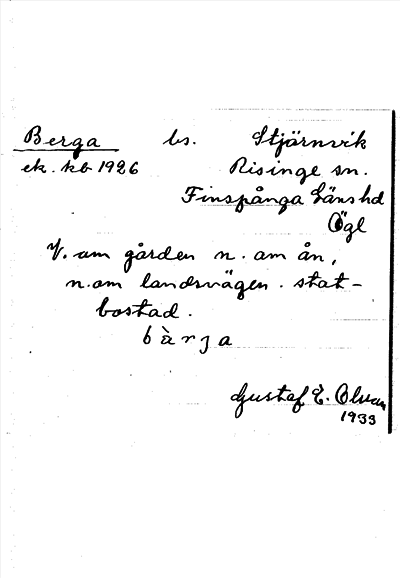 Berga bs. Stjärnvik
ek. kb 1926 Risinge sn.
Finspånga läns hd
Ögl
V. om gården n. om ån,
n. om landsvägen. stat-
bostad.
bàrja
Gustaf E. Olsson
1933